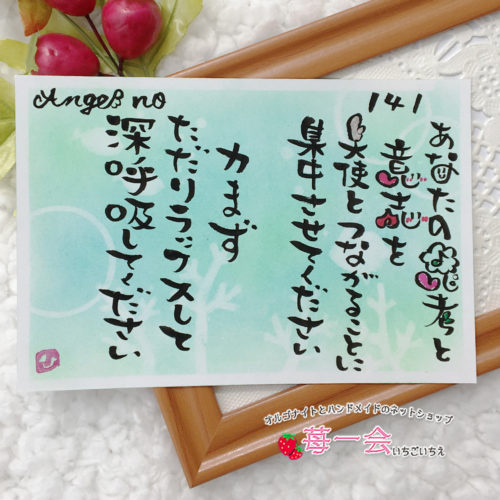 Angel no
141
あなたの思考と
意志を
天使とつながることに
集中させてください
力まず
ただリラックスして
深呼吸してください
オルゴナイトとハンドメイドのネットショップ
苺一会いちごいちえ